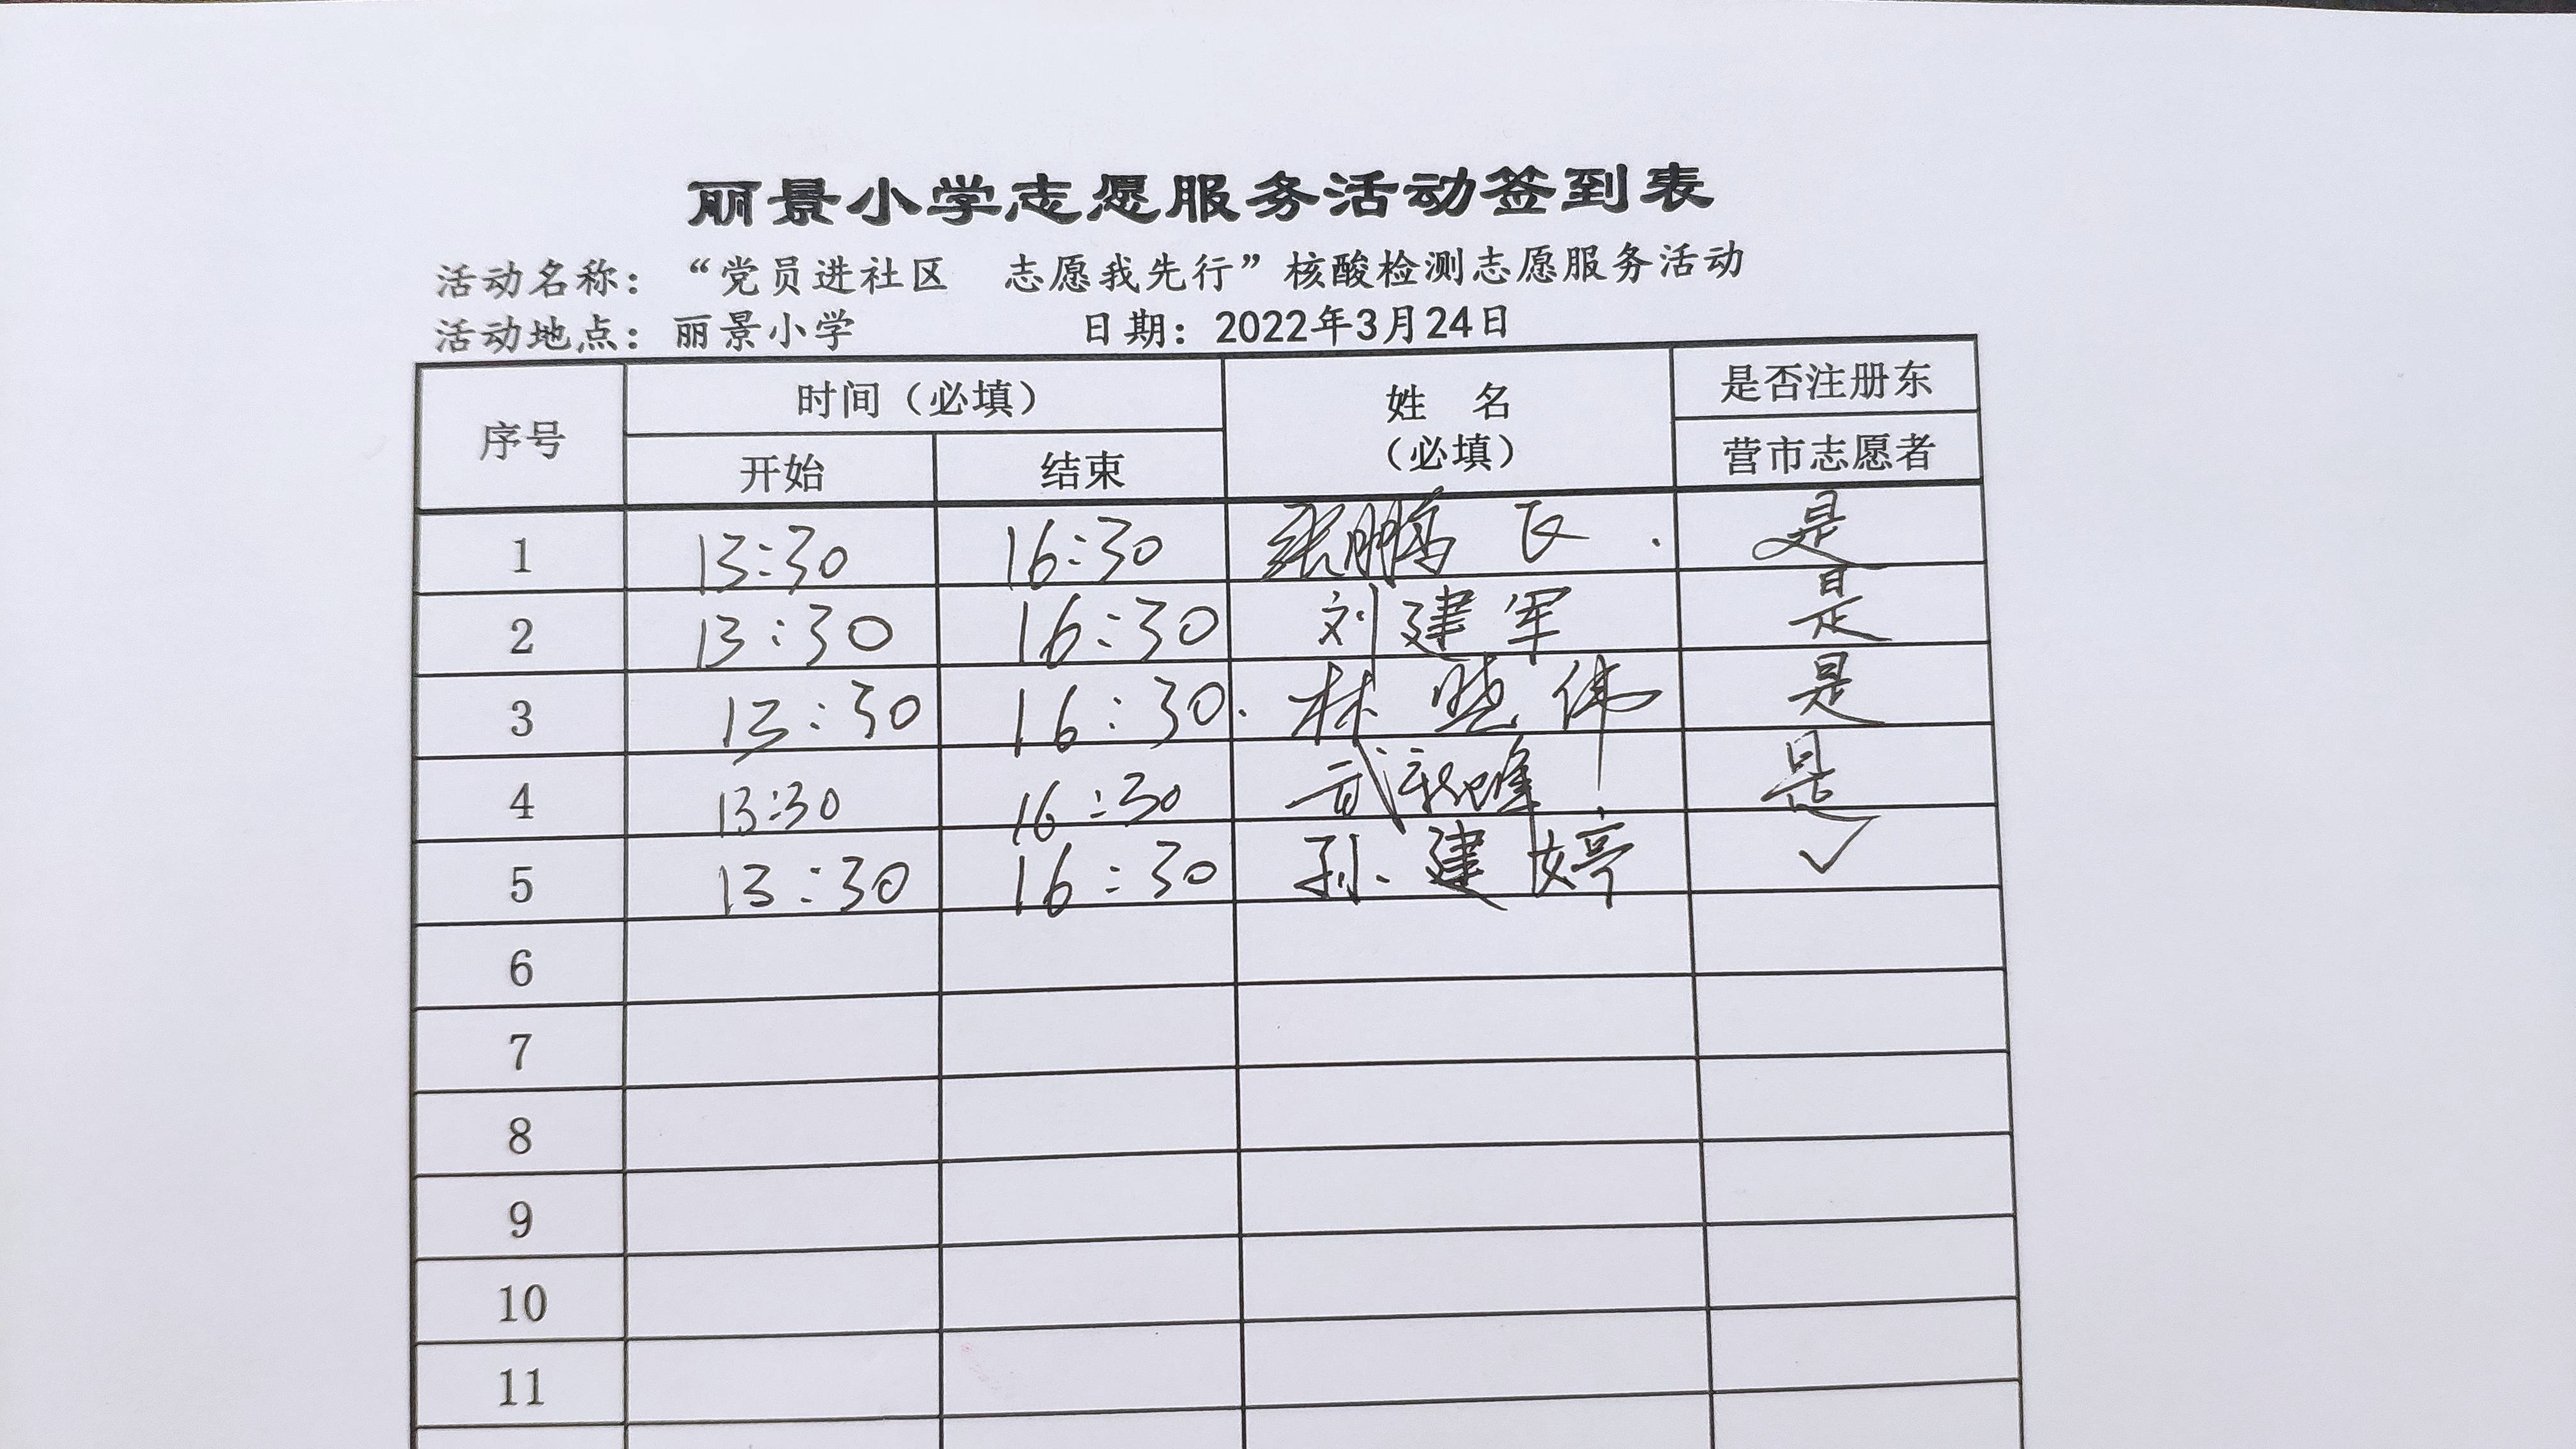 丽景小学志愿服务活动签到表
活动名称：“党员进社区 志愿我先行”核酸检测志愿服务活动
活动地点：丽景小学 日期：2022年3月24日
序号 时间（必填） 姓 名 是否注册东
开始 结束 （必填） 营市志愿者
1 13:30 16:30 张鹏飞 是
2 13:30 16:30 刘建军 是
3 13:30 16:30 林晓伟 是
4 13:30 16:30 武 峰 是
5 13:30 16:30 孙建婷 ✓
6
7
8
9
10
11